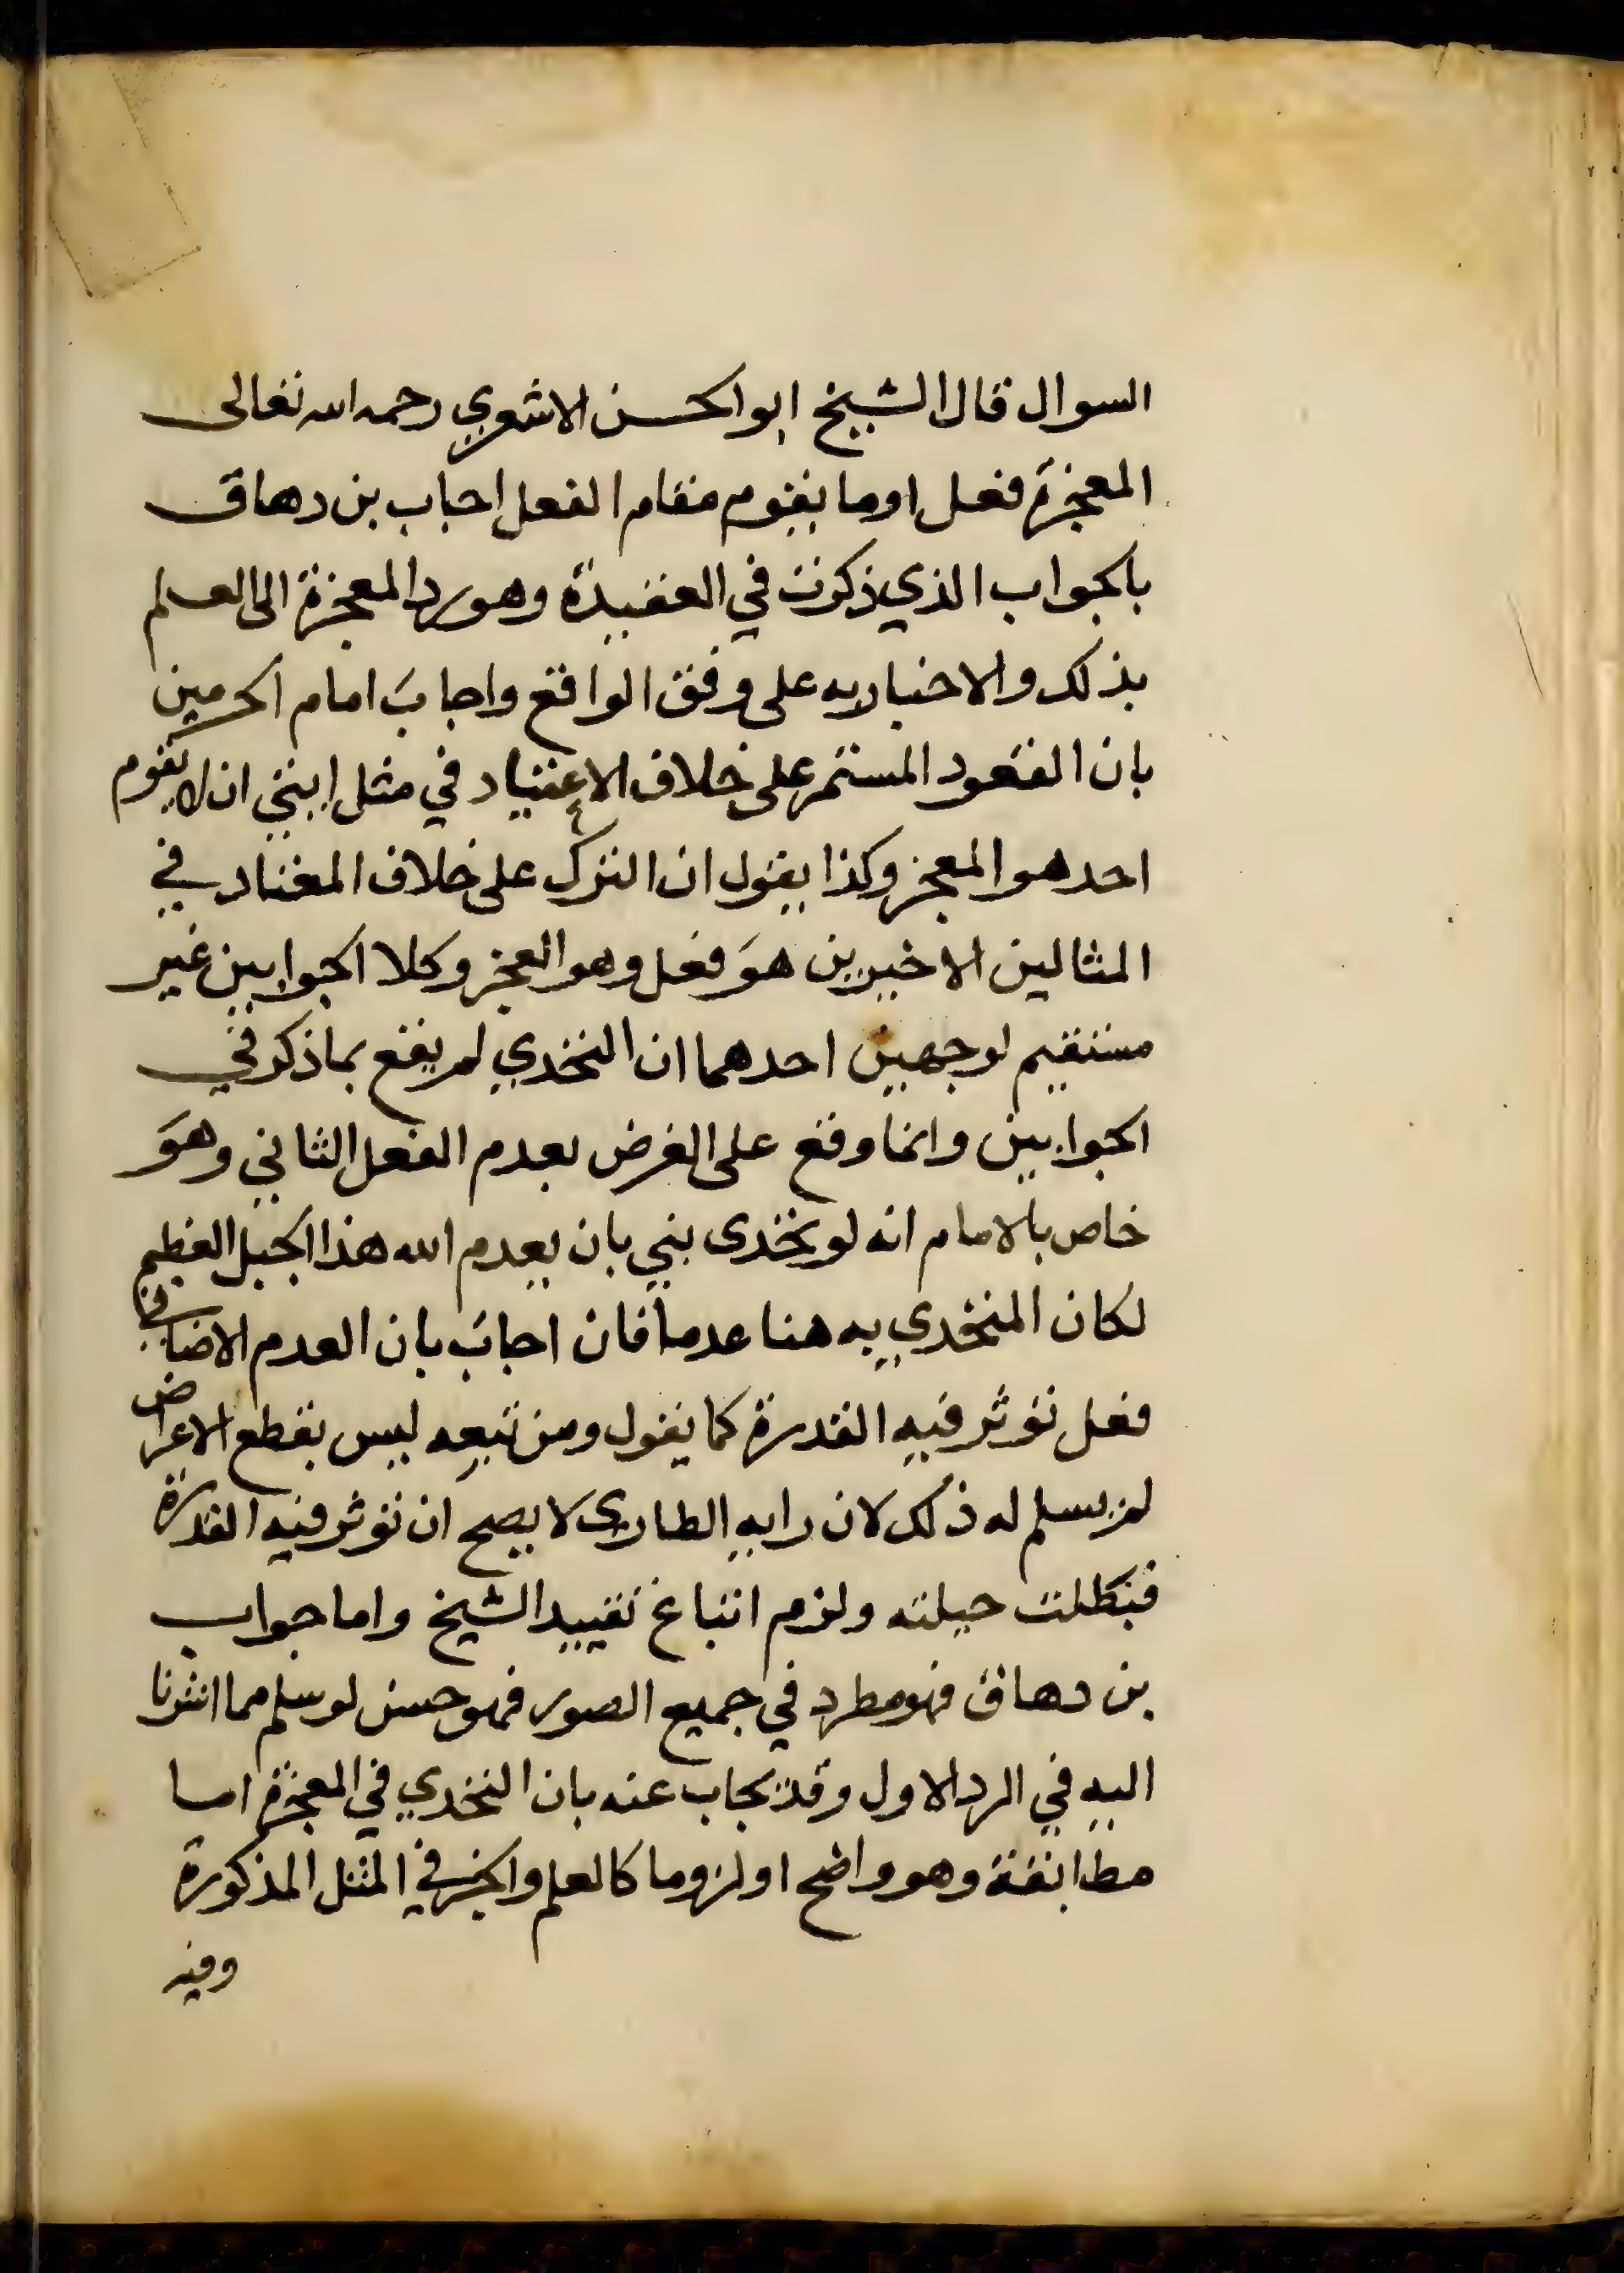 السوال قال الشيخ ابو الحسن الاشعري رحمه الله تعالى
المعجزة فعل او ما يقوم مقام الفعل اجاب بن دهاق
بالجواب الذي ذكرت في العقيدة وهو رد المعجزة الى العلم
بذلك والاخبار به على وفق الواقع واجاب امام الحرمين
بان القعود المستمر على خلاف الاعتياد في مثل ايتي ان لا يقوم
احد هو المعجز وكذا يقول ان الترك على خلاف المعتاد في
المثالين الاخيرين هو فعل وهو العجز وكلا الجوابين غير
مستقيم لوجهين احدهما ان التحدي لم يقع بما ذكر في
الجوابين وانما وقع على الغرض بعدم الفعل الثاني وهو
خاص بالامام انه لو تحدى نبي بان يعدم الله هذا الجبل العظيم
لكان المتحدي به هنا عدما فان اجاب بان العدم الاضافي
فعل تؤثر فيه القدرة كما يقول ومن تبعه ليس بقطع الاعراض
لم يسلم له ذلك لان رايه الطاري لا يصح ان تؤثر فيه القدرة
فبطلت حيلته ولزم اتباع تقييد الشيخ واما جواب
بن دهاق فهو مطرد في جميع الصور فهو حسن لو سلم مما اشرنا
اليه في الرد الاول وقد يجاب عنه بان التحدي في المعجزة اما
مطابقة وهو واضح او لزوما كالعلم والخبر في المثل المذكورة
وفيه